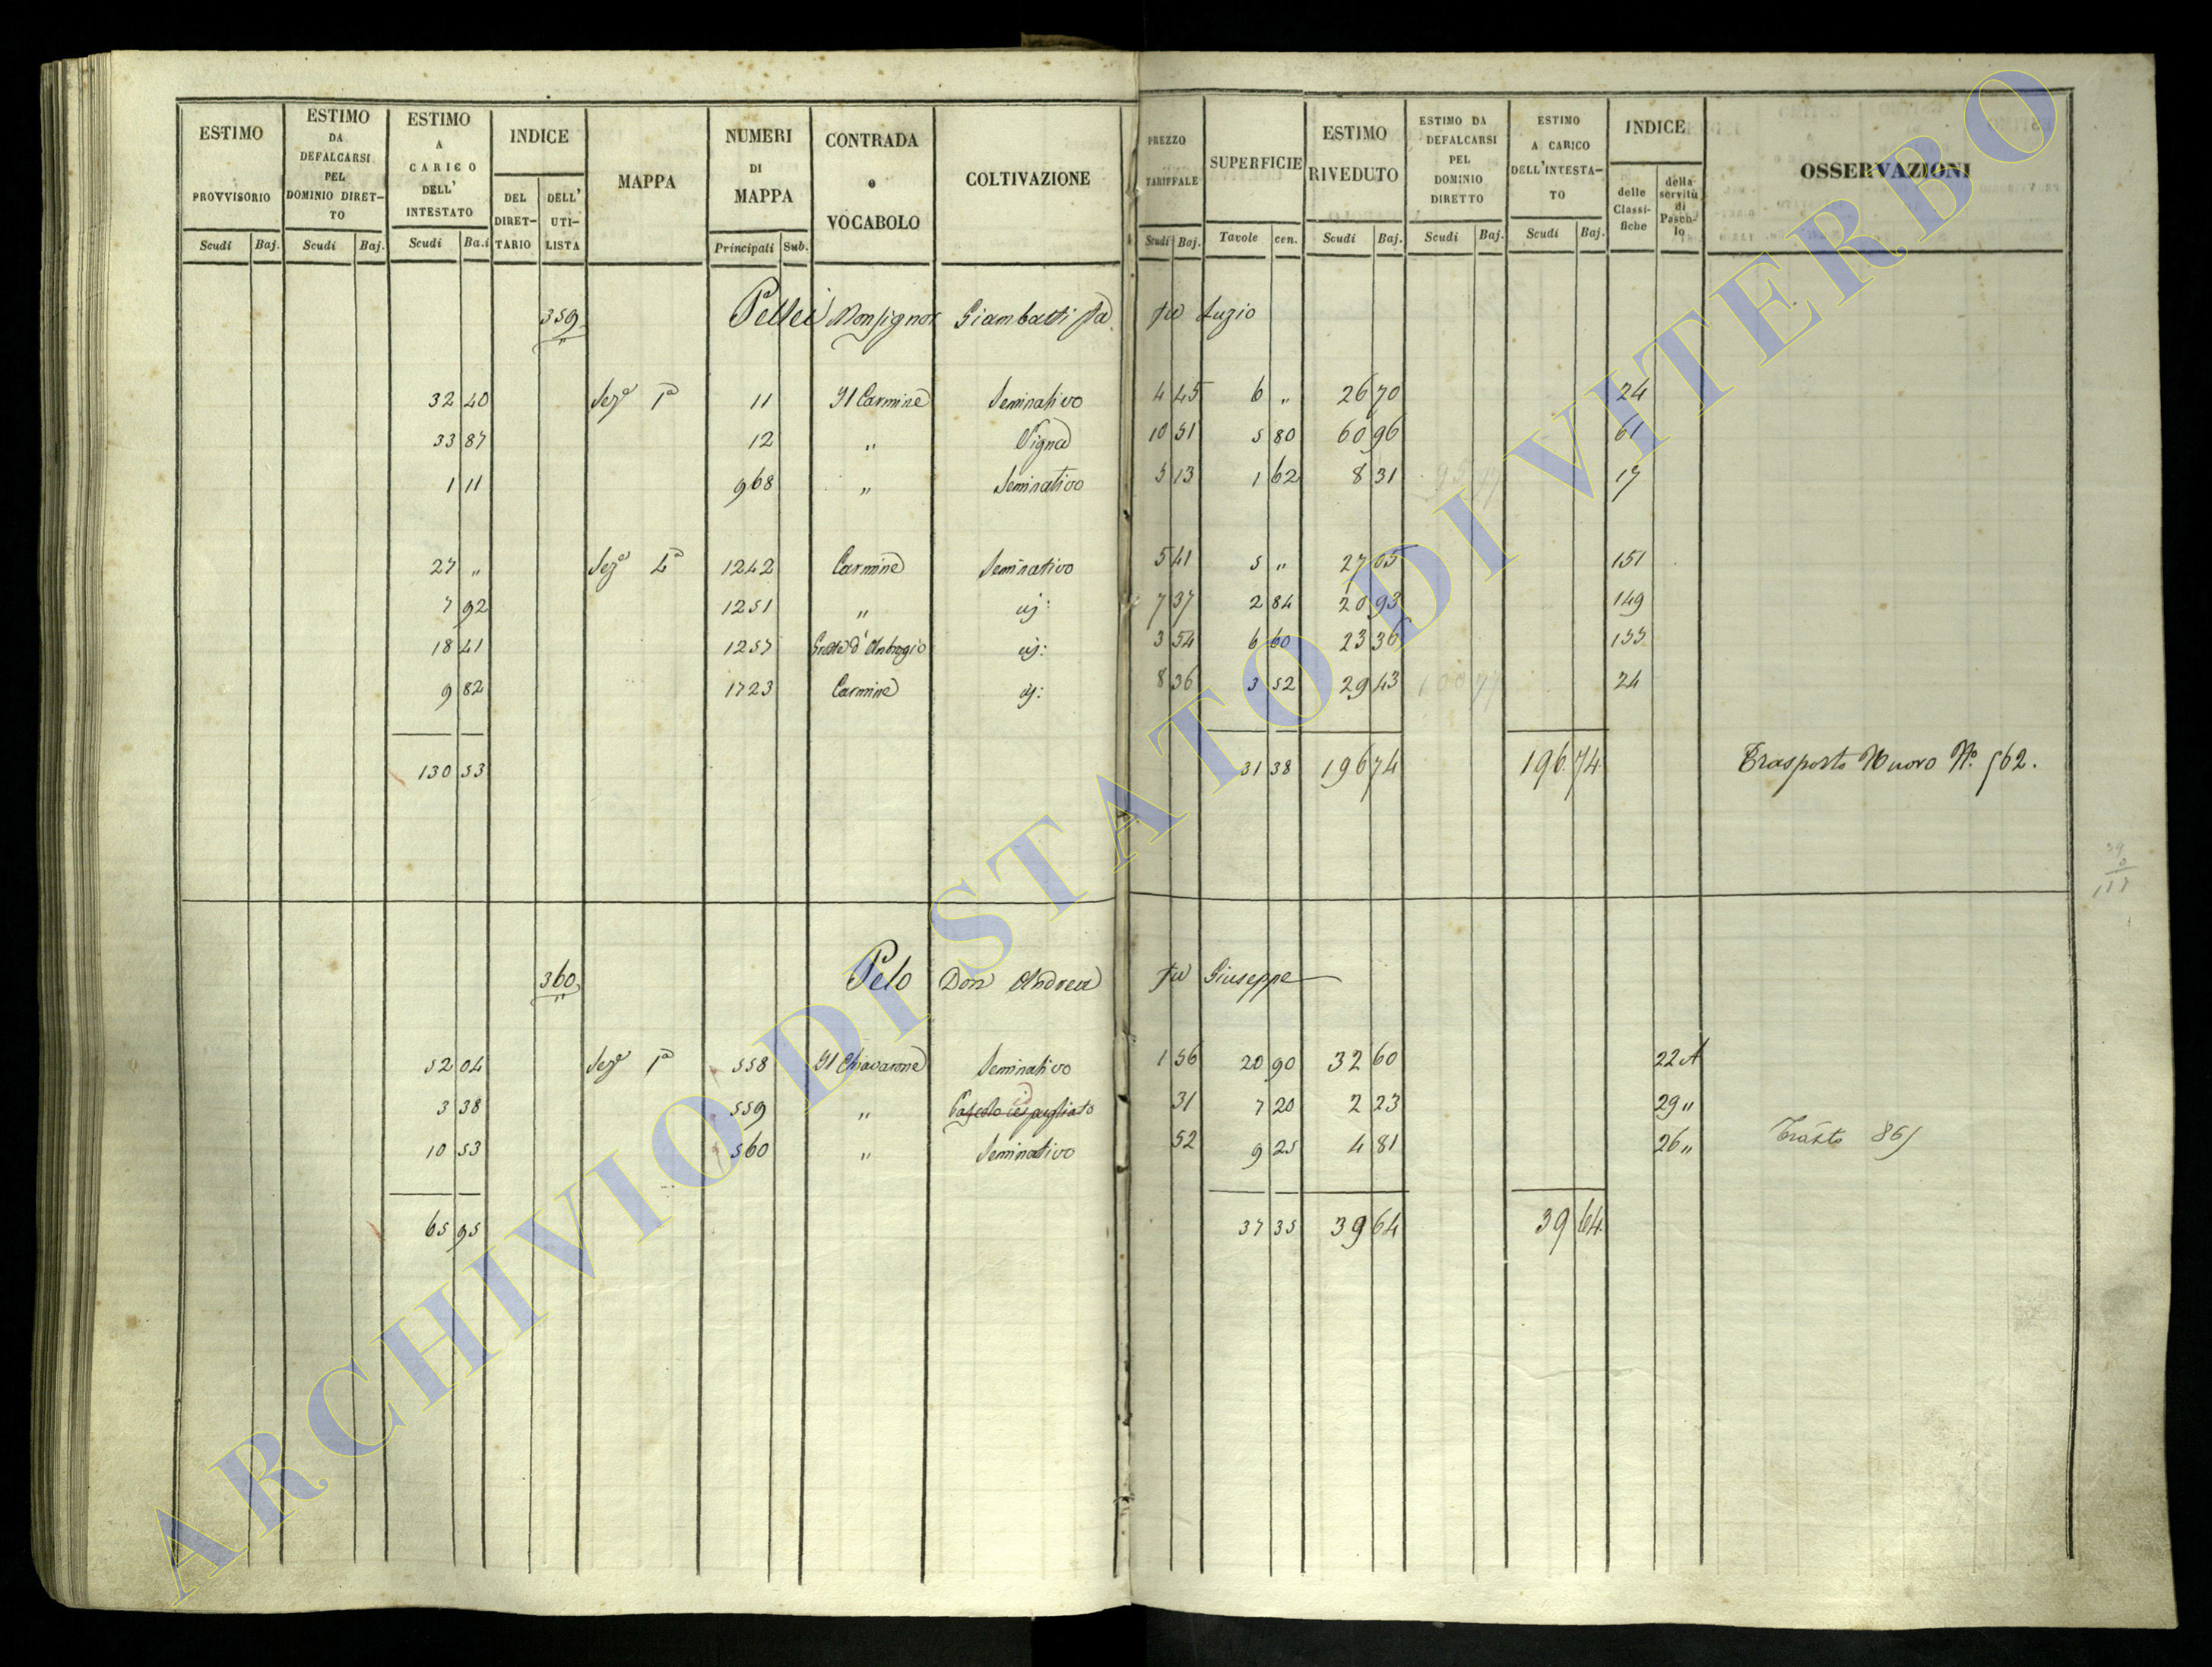 ESTIMO PROVVISORIO Scudi Baj. ESTIMO DA DEFALCARSI PEL DOMINIO DIRETTO Scudi Baj. ESTIMO A CARICO DELL' INTESTATO Scudi Ba.i INDICE DEL DIRETTARIO DELL' UTILISTA MAPPA NUMERI DI MAPPA Principali Sub. CONTRADA o VOCABOLO COLTIVAZIONE PREZZO TARIFFALE Scudi Baj. SUPERFICIE Tavole cen. ESTIMO RIVEDUTO Scudi Baj. ESTIMO DA DEFALCARSI PEL DOMINIO DIRETTO Scudi Baj. ESTIMO A CARICO DELL'INTESTATO Scudi Baj. INDICE delle Classifiche della servitù di Pascolo OSSERVAZIONI
359 Pellei Monsignor Giambattista fu Luzio
32 40 Sez.e 1a 11 Il Carmine Seminativo 4 45 6 " 26 70 24
33 87 12 " Vigna 10 51 5 80 60 96 61
1 11 968 " Seminativo 5 13 1 62 8 31 17
27 " Sez.e 4a 1242 Carmine Seminativo 5 41 5 " 27 05 151
7 92 1251 " 7 37 2 84 20 93 149
18 41 1257 d'Ambrogio 3 54 6 60 23 36 155
9 82 1723 Carmine 8 36 3 52 29 43 24
130 53 31 38 196 74 196 74 Trasporto Nuovo N.o 562.
360 Pelo Don Andrea fu Giuseppe
52 04 Sez.e 1a 558 Il Chiavarone Seminativo 1 56 20 90 32 60 22 A
3 38 559 " Pascolo cespugliato 31 7 20 2 23 29 "
10 53 560 " Seminativo 52 9 25 4 81 26 " Trasto 865
65 95 37 35 39 64 39 64
ARCHIVIO DI STATO DI VITERBO